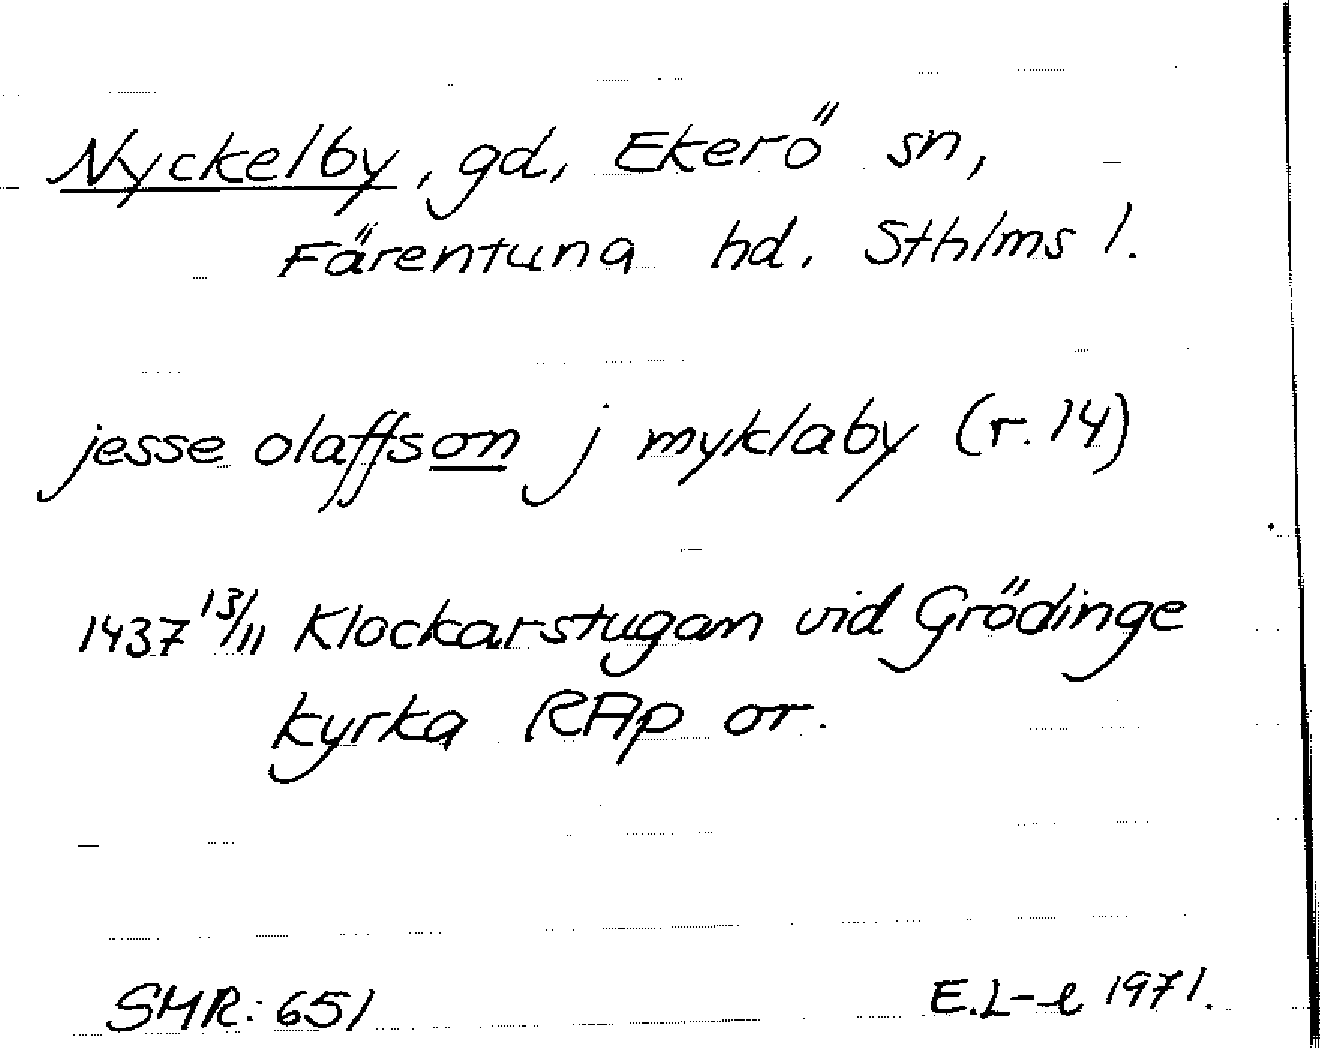 Nyckelby, gd, Ekerö sn,
Färentuna hd. Sthlms l.
jesse olaffson j myklaby (r. 14)
1437 13/11 Klockarstugan vid Grödinge
kyrka RAp or.
SMR: 651
E.L-l 1971.